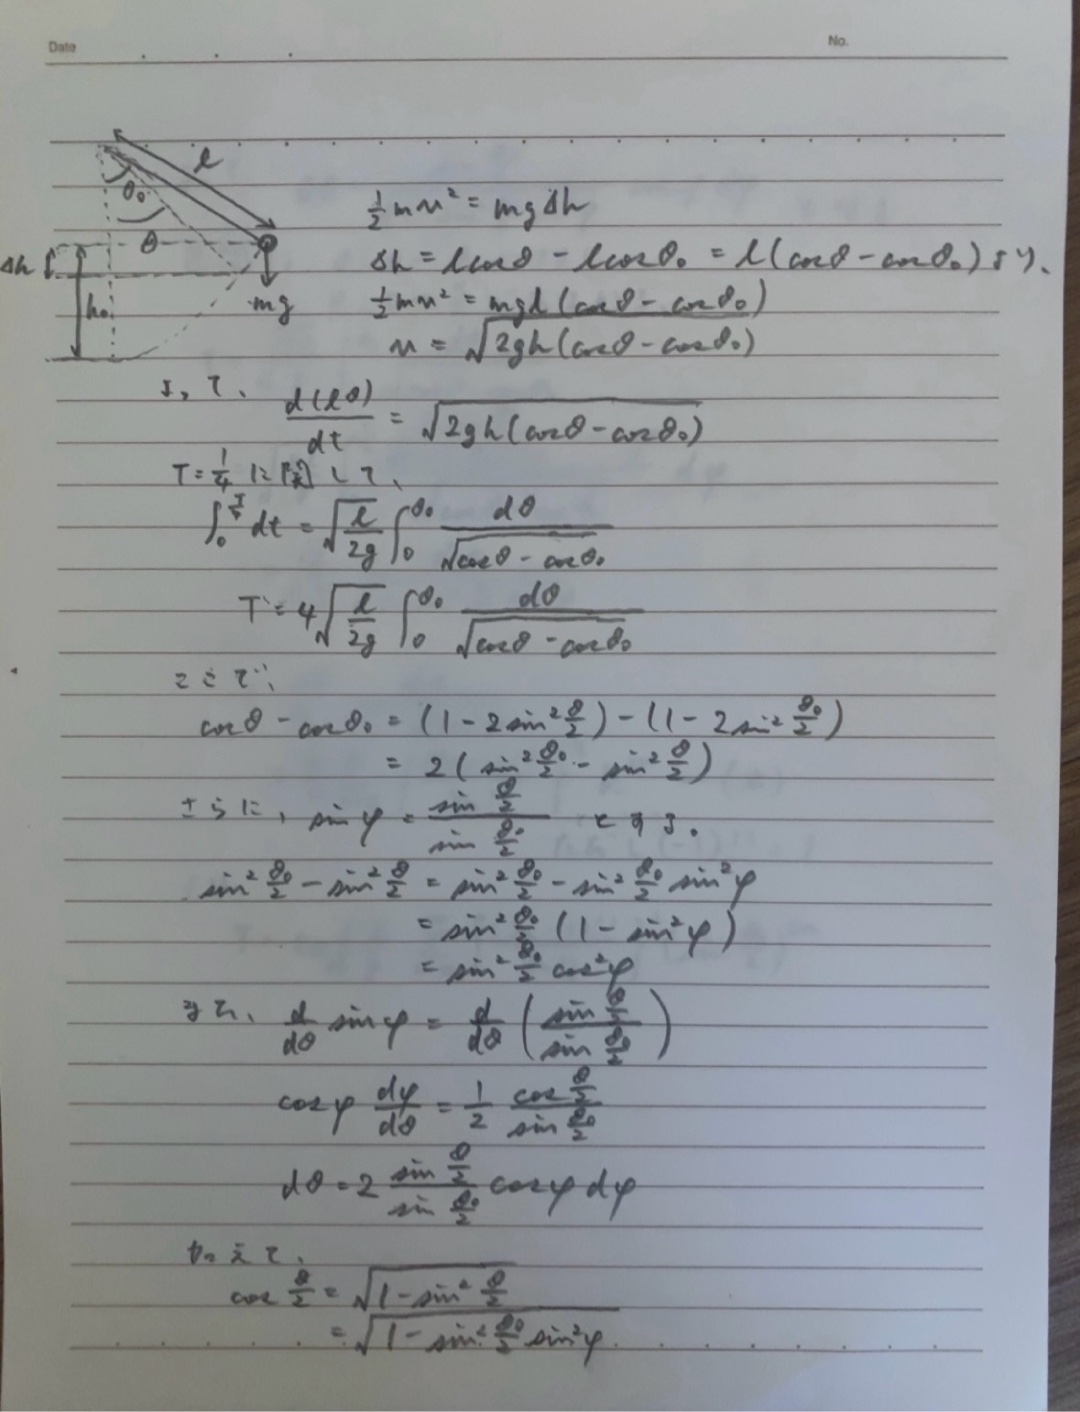 Date
No.
l
θ₀
θ
Δh
h₀
mg
½mv² = mgΔh
Δh = lcosθ − lcosθ₀ = l(cosθ − cosθ₀)より、
½mv² = mgl(cosθ − cosθ₀)
v = √(2gh(cosθ − cosθ₀))
よって、
d(lθ)/dt = √(2gh(cosθ − cosθ₀))
T = 1/4 に関して、
∫₀^(T/4) dt = √(l/2g) ∫₀^θ₀ dθ/√(cosθ − cosθ₀)
T = 4√(l/2g) ∫₀^θ₀ dθ/√(cosθ − cosθ₀)
ここで、
cosθ − cosθ₀ = (1 − 2sin² θ/2) − (1 − 2sin² θ₀/2)
= 2(sin² θ₀/2 − sin² θ/2)
さらに、sinφ = (sin θ/2)/(sin θ₀/2) とする。
sin² θ₀/2 − sin² θ/2 = sin² θ₀/2 − sin² θ₀/2 sin²φ
= sin² θ₀/2 (1 − sin²φ)
= sin² θ₀/2 cos²φ
また、 d/dθ sinφ = d/dθ ((sin θ/2)/(sin θ₀/2))
cosφ dφ/dθ = 1/2 (cos θ/2)/(sin θ₀/2)
dθ = 2 (sin θ/2)/(sin θ₀/2) cosφ dφ
加えて、
cos θ/2 = √(1 − sin² θ/2)
= √(1 − sin² θ₀/2 sin²φ)